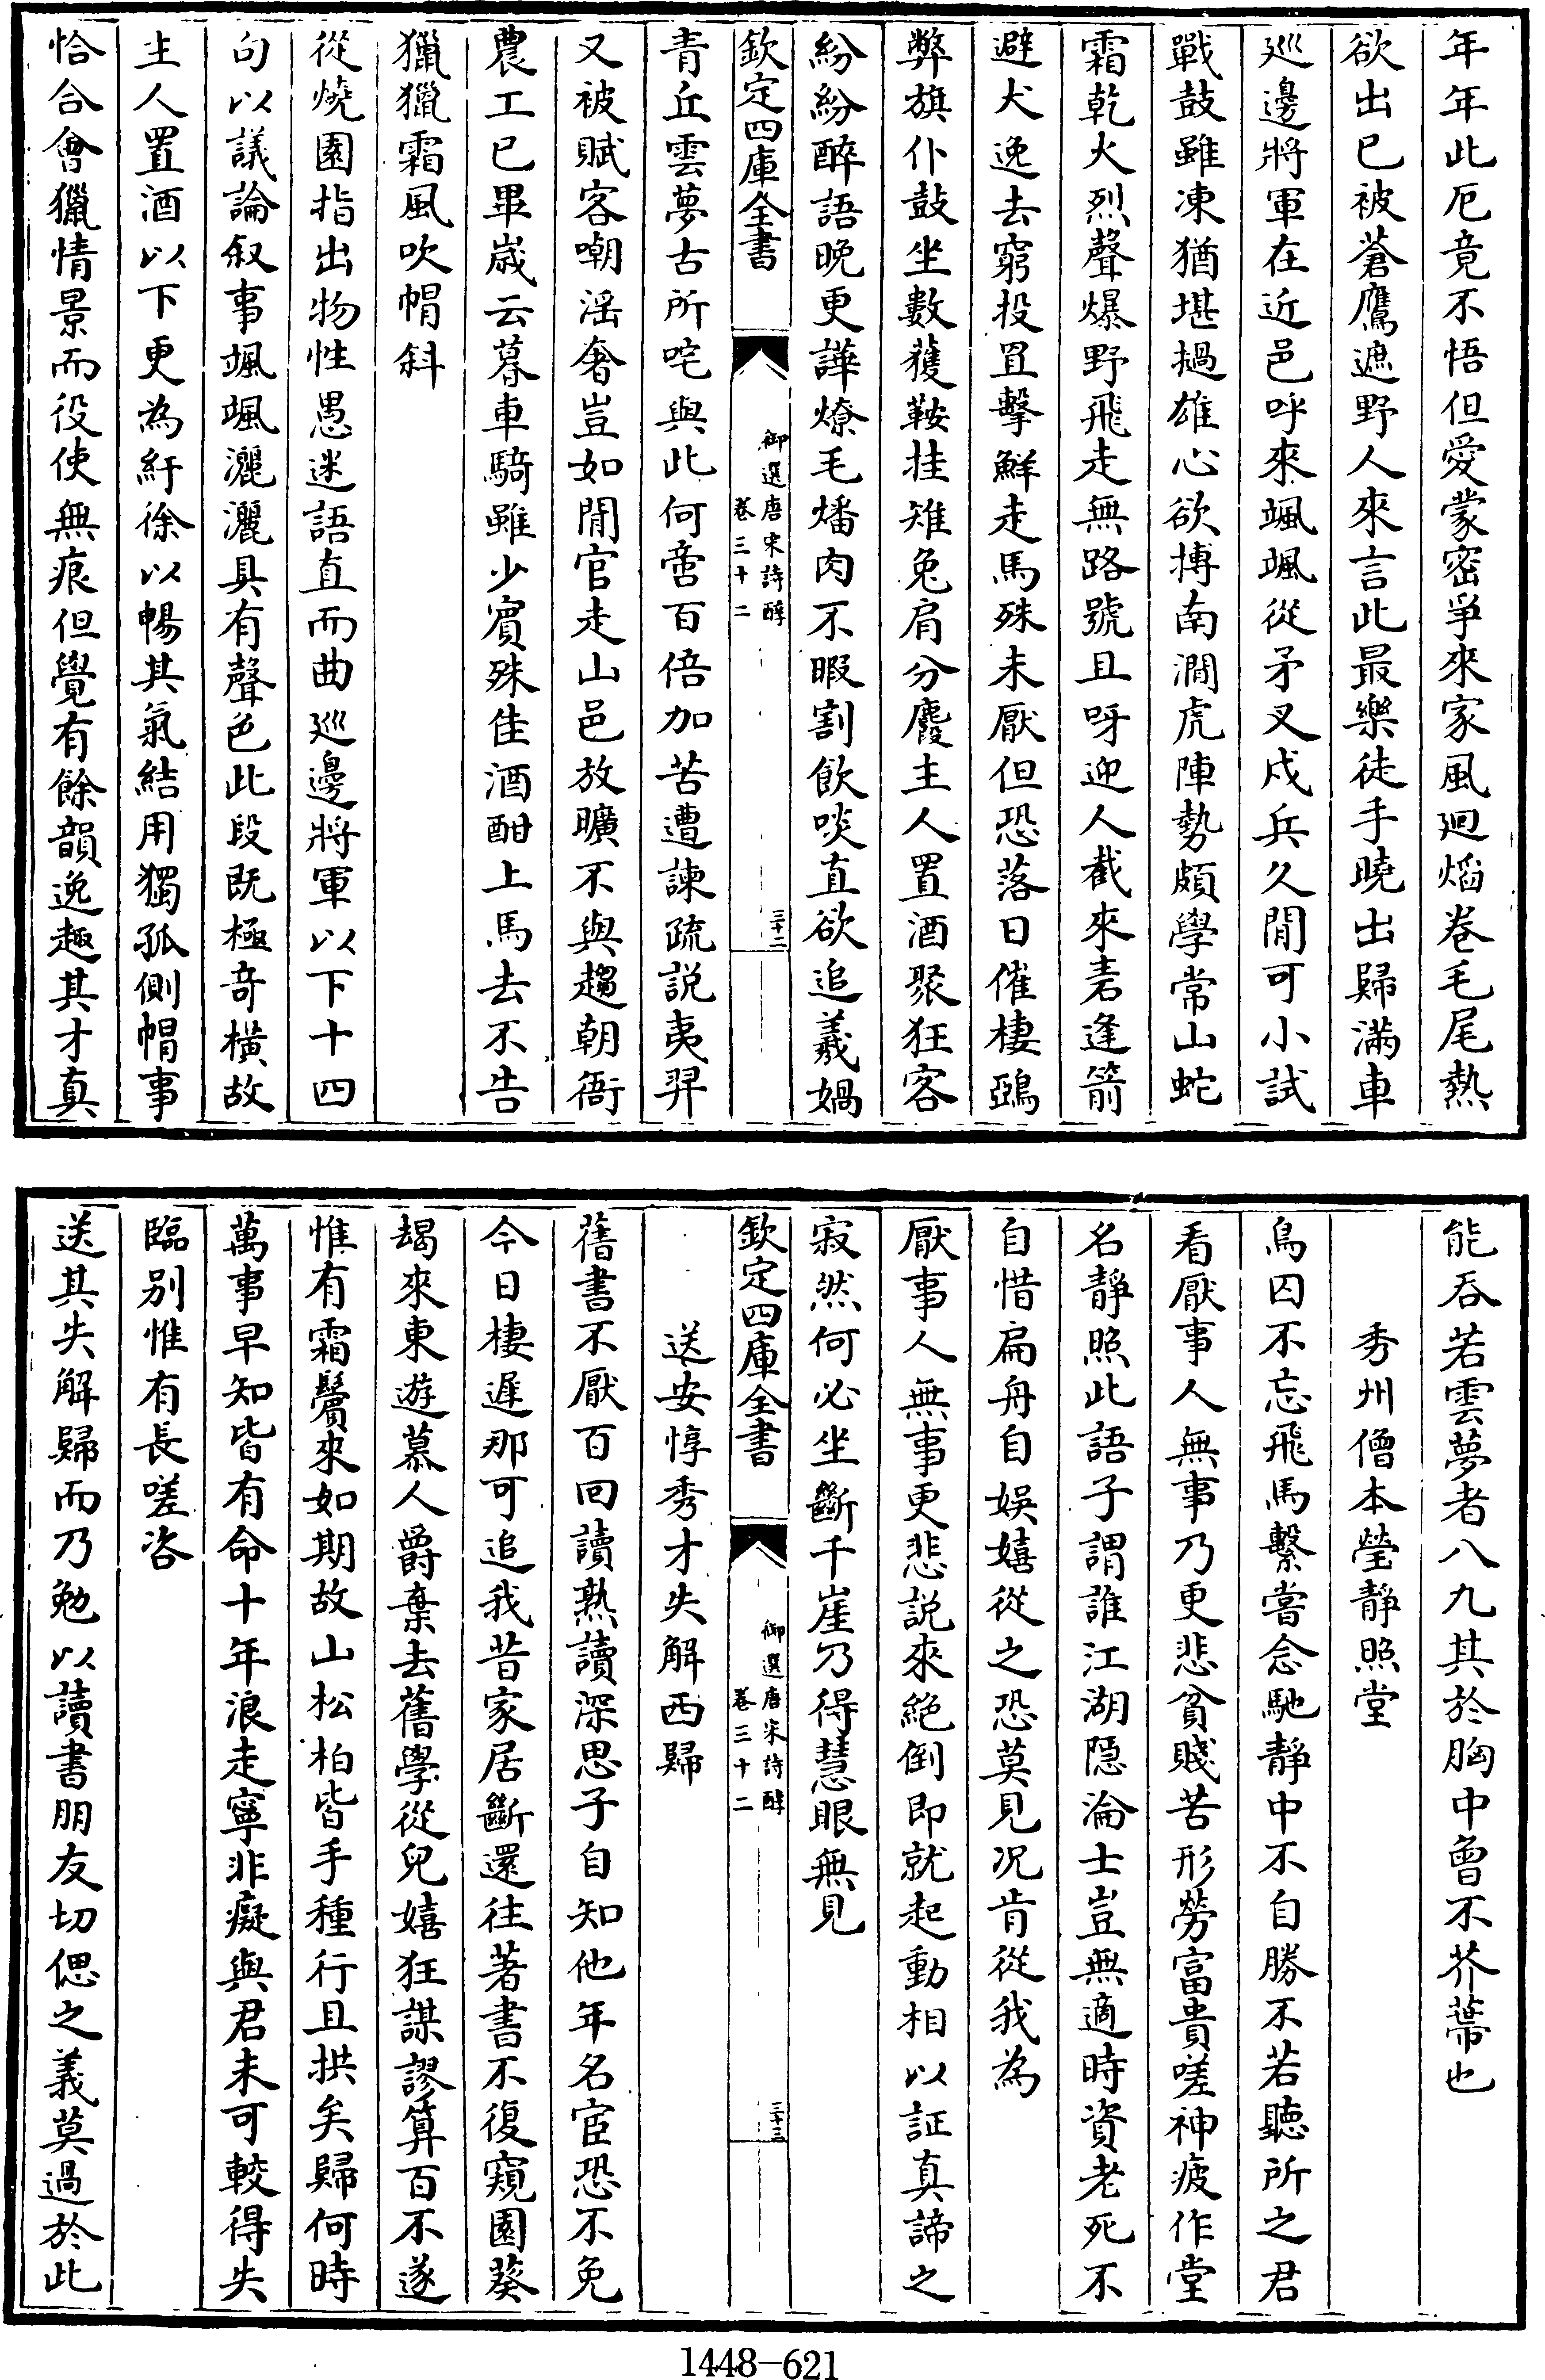 年年此厄竟不悟但愛蒙密爭來家風迴焰卷毛尾熱
欲出已被蒼鷹遮野人來言此最樂徒手曉出歸滿車
巡邊將軍在近邑呼來颯颯從矛叉戍兵久閒可小試
戰鼓雖凍猶堪撾雄心欲搏南澗虎陣勢頗學常山蛇
霜乾火烈聲爆野飛走無路號且呀迎人截來砉逢箭
避犬逸去窮投罝擊鮮走馬殊未厭但恐落日催棲鵶
弊旗仆鼓坐數獲鞍挂雉兔肩分麚主人置酒聚狂客
紛紛醉語晚更譁燎毛燔肉不暇割飲啖直欲追羲媧
欽定四庫全書
御選唐宋詩醇
卷三十二
三十二
青丘雲夢古所咤與此何啻百倍加苦遭諫疏説夷羿
又被賦客嘲淫奢豈如閒官走山邑放曠不與趨朝衙
農工已畢歲云暮車騎雖少賓殊佳酒酣上馬去不告
獵獵霜風吹帽斜
從燒園指出物性愚迷語直而曲巡邊將軍以下十四
句以議論叙事颯颯灑灑具有聲色此段既極奇橫故
主人置酒以下更為紆徐以暢其氣結用獨孤側帽事
恰合會獵情景而役使無痕但覺有餘韻逸趣其才真
能吞若雲夢者八九其於胸中曾不芥蔕也
秀州僧本瑩靜照堂
鳥囚不忘飛馬繫嘗念馳靜中不自勝不若聽所之君
看厭事人無事乃更悲貧賤苦形勞富貴嗟神疲作堂
名靜照此語子謂誰江湖隱淪士豈無適時資老死不
自惜扁舟自娛嬉從之恐莫見况肯從我為
厭事人無事更悲説來絶倒即就起動相以証真諦之
寂然何必坐斷千崖乃得慧眼無見
欽定四庫全書
御選唐宋詩醇
卷三十二
三十三
送安惇秀才失解西歸
舊書不厭百回讀熟讀深思子自知他年名宦恐不免
今日棲遲那可追我昔家居斷還往著書不復窺園葵
朅來東遊慕人爵棄去舊學從兒嬉狂謀謬算百不遂
惟有霜鬢來如期故山松柏皆手種行且拱矣歸何時
萬事早知皆有命十年浪走寧非癡與君未可較得失
臨别惟有長嗟咨
送其失解歸而乃勉以讀書朋友切偲之義莫過於此
1448-621